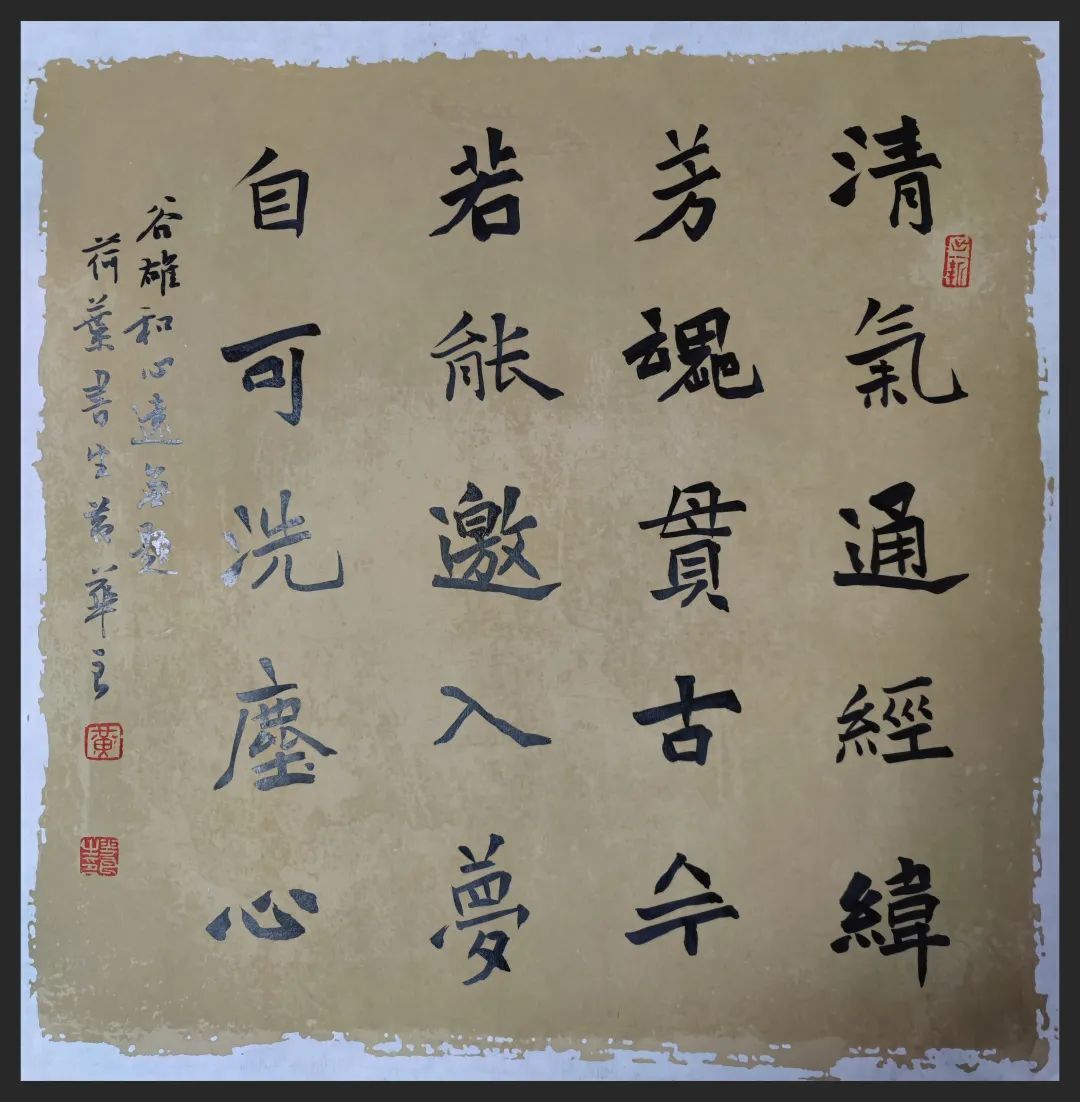 清氣通經緯
芳魂貫古今
若能邀入夢
自可洗塵心
谷雄和心遠無題
荷葉書生黃華
黃